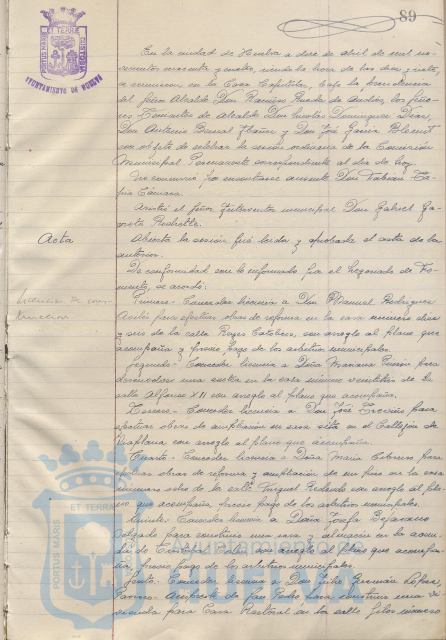 89
PORTUS MARIS ET TERRE CUSTODIA
AYUNTAMIENTO DE HUELVA
En la ciudad de Huelva a doce de abril de mil no-
vecientos cuarenta y cuatro, siendo la hora de las diez y siete,
se reunieron en la Casa Capitular, bajo la presidencia
del Señor Alcalde Don Ramiro Rueda de Andrés, los Seño-
res Tenientes de Alcalde Don Lucas Domínguez Díaz,
Don Antonio y Don José García
con objeto de celebrar la sesión ordinaria de la Comisión
Municipal Permanente correspondiente al día de hoy.
No concurrió por encontrarse ausente Don Fabián Ta-
pia Cámara.
Asistió el Señor Interventor municipal Don Gabriel Ga-
Acta
Abierta la sesión fué leída y aprobada el acta de la
anterior.
De conformidad con lo informado por el Negociado de Fo-
mento, se acordó:
Licencias de cons-
trucción
Primero = Conceder licencia a Don Manuel Rodríguez
para efectuar obras de reforma en la casa número diez
y seis de la calle Reyes Católicos, con arreglo al plano que
acompaña y previo pago de los arbitrios municipales.
Segundo = Conceder licencia a Doña Mariana para
en la casa número de la
calle Alfonso XII con arreglo al plano que acompaña.
Tercero = Conceder licencia a Don José para
efectuar obras de ampliación en casa sita en el Callejón de
con arreglo al plano que acompaña.
Cuarto = Conceder licencia a Doña María Cabrera para
efectuar obras de reforma y ampliación de un piso en la casa
número de la calle con arreglo al pla-
no que acompaña, previo pago de los arbitrios municipales.
Quinto = Conceder licencia a Doña Josefa Bejarano
Delgado para construir una casa
de con arreglo al plano que acompa-
ña, previo pago de los arbitrios municipales.
Sexto = Conceder licencia a Don Julio Guzmán López,
Arcipreste de San Pedro para construir una vi-
vienda para Casa Rectoral en la calle número
PORTUS MARIS ET TERRE CUSTODIA
Ayuntamiento de